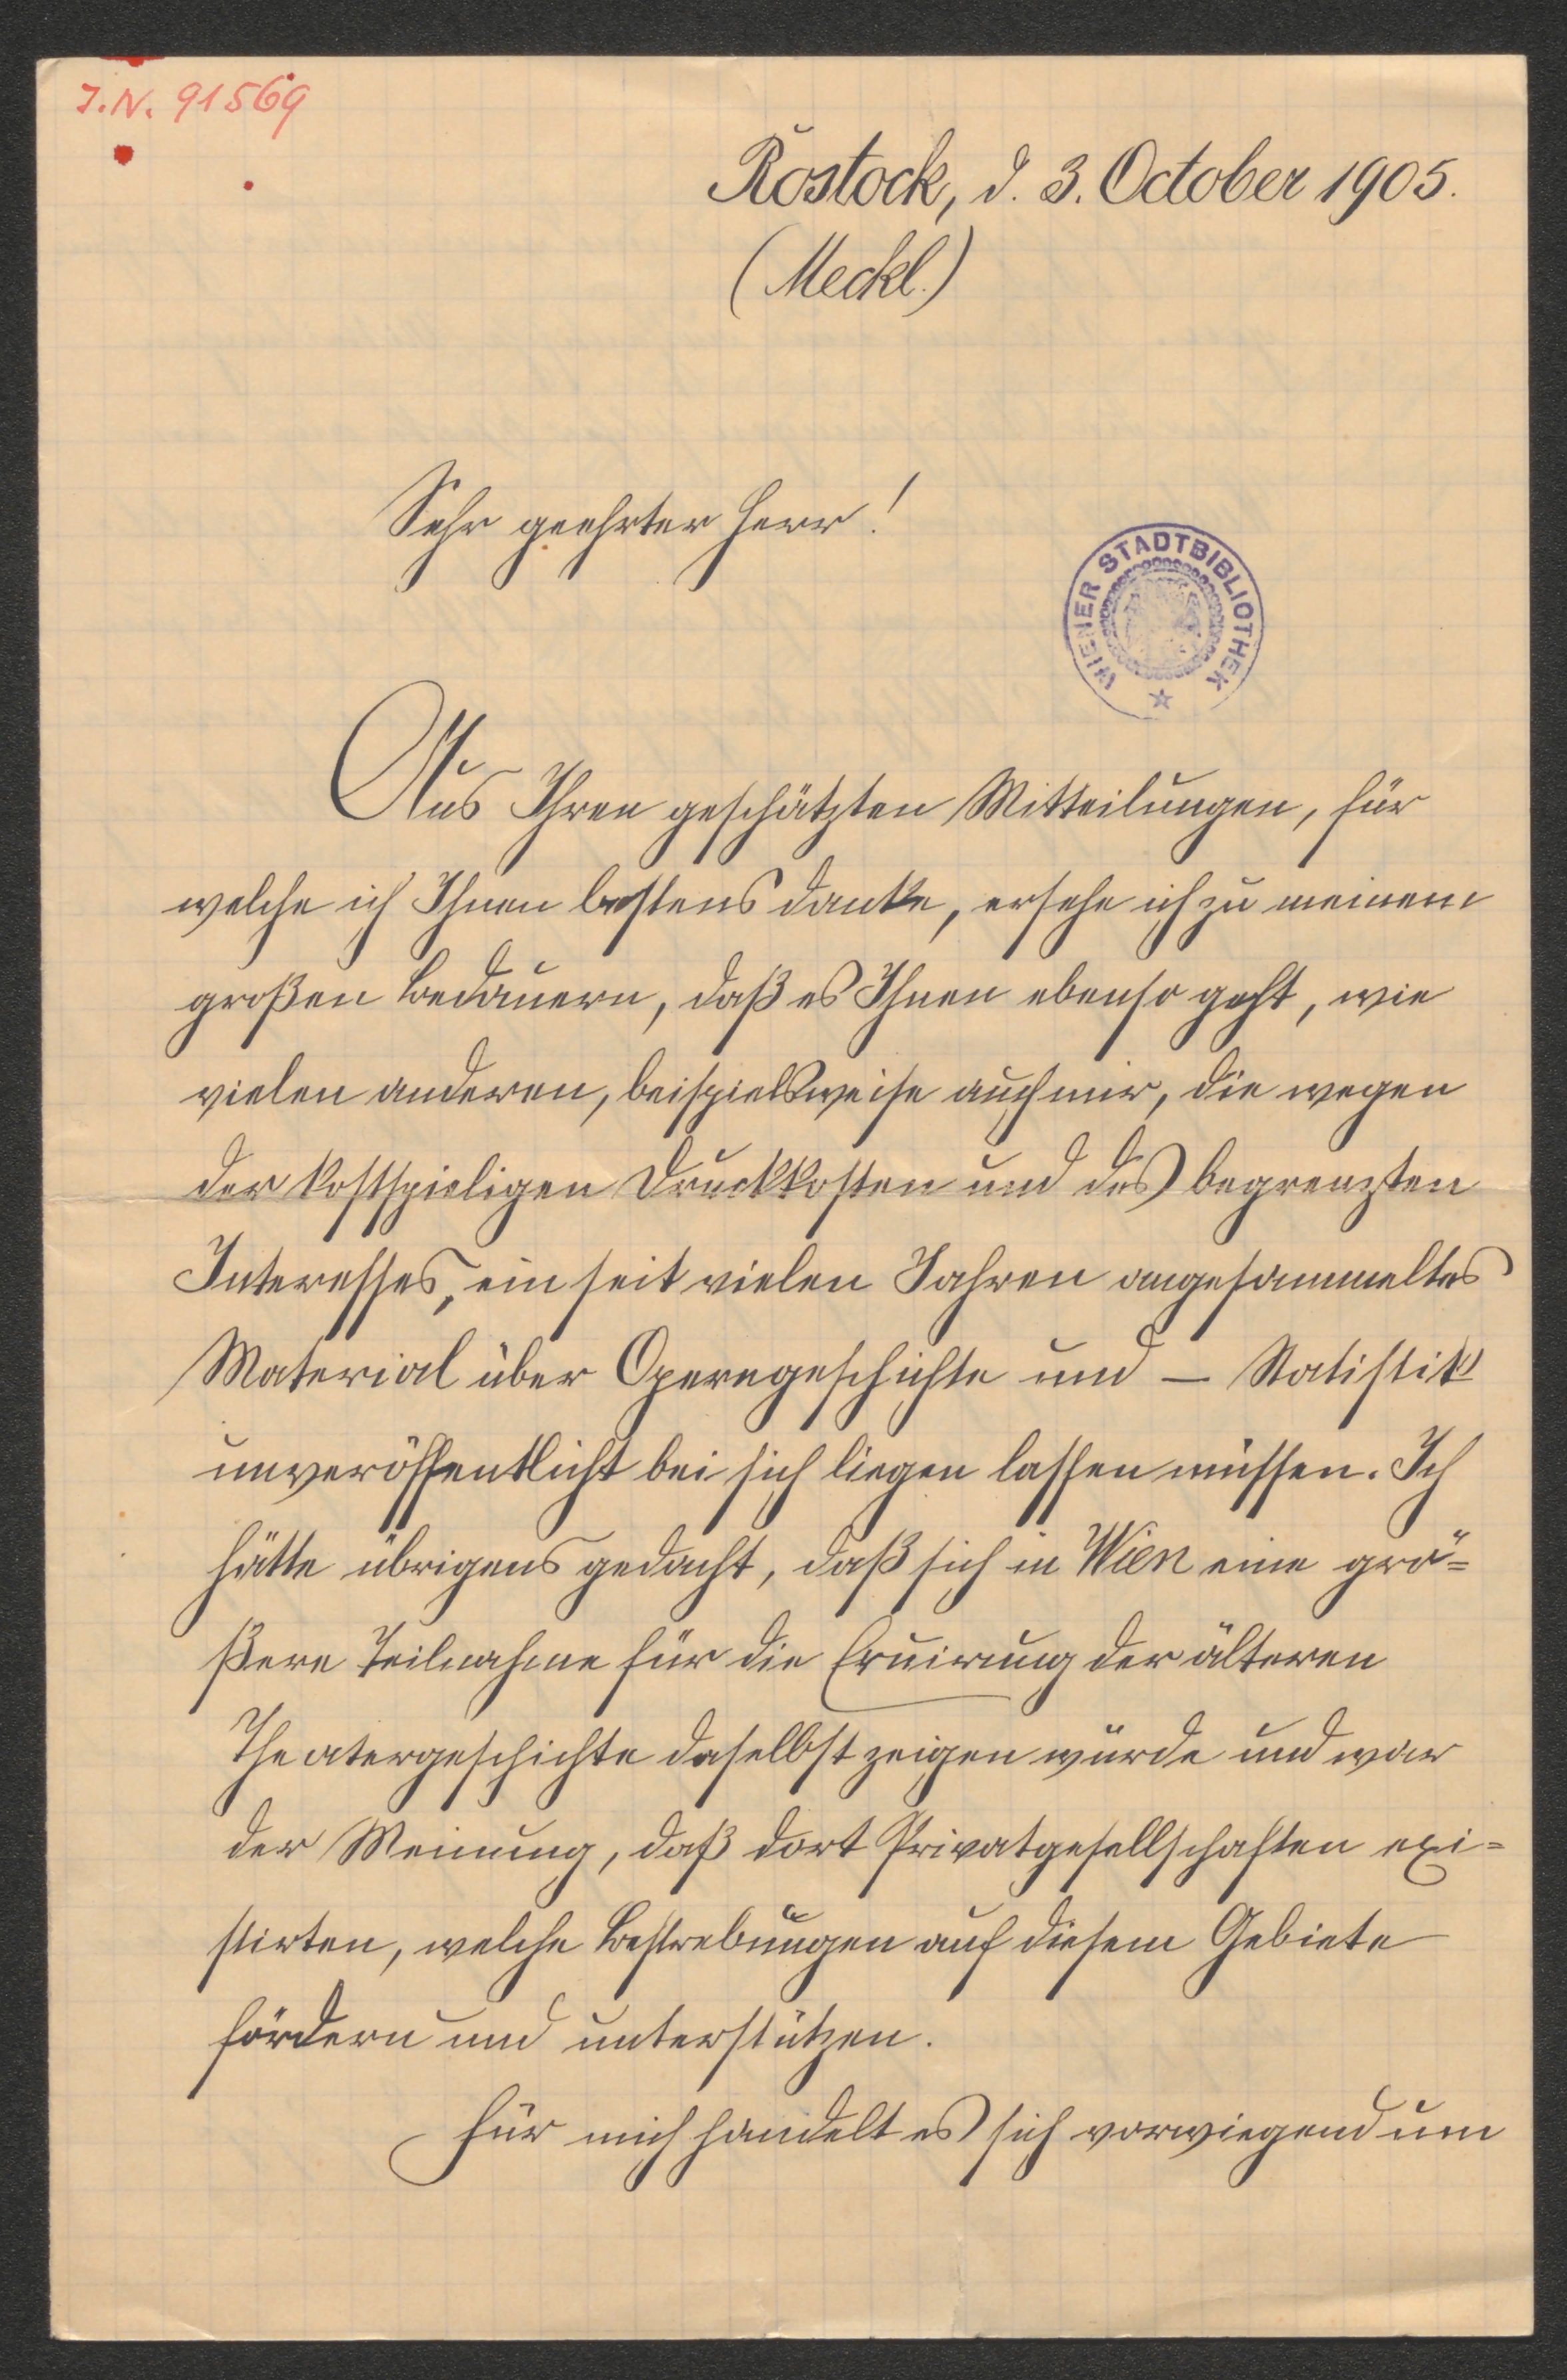 J.N. 91569
Rostock, d. 3. October 1905.
(Meckl.)
Sehr geehrter Herr!
WIENER STADTBIBLIOTHEK
Aus Ihren geschätzten Mitteilungen, für
welche ich Ihnen bestens danke, ersehe ich zu meinem
großen Bedauern, daß es Ihnen ebenso geht, wie
vielen anderen, beispielsweise auch mir, die wegen
der kostspieligen Druckkosten und des begrenzten
Interesses, ein seit vielen Jahren angesammeltes
Material über Operngeschichte und – Statistik
unveröffentlicht bei sich liegen lassen müssen. Ich
hätte übrigens gedacht, daß sich in Wien eine grö=
ßere Teilnahme für die Eruirung der älteren
Theatergeschichte daselbst zeigen würde und war
der Meinung, daß dort Privatgesellschaften exi=
stirten, welche Bestrebungen auf diesem Gebiete
fördern und unterstützen.
Für mich handelt es sich vorwiegend um